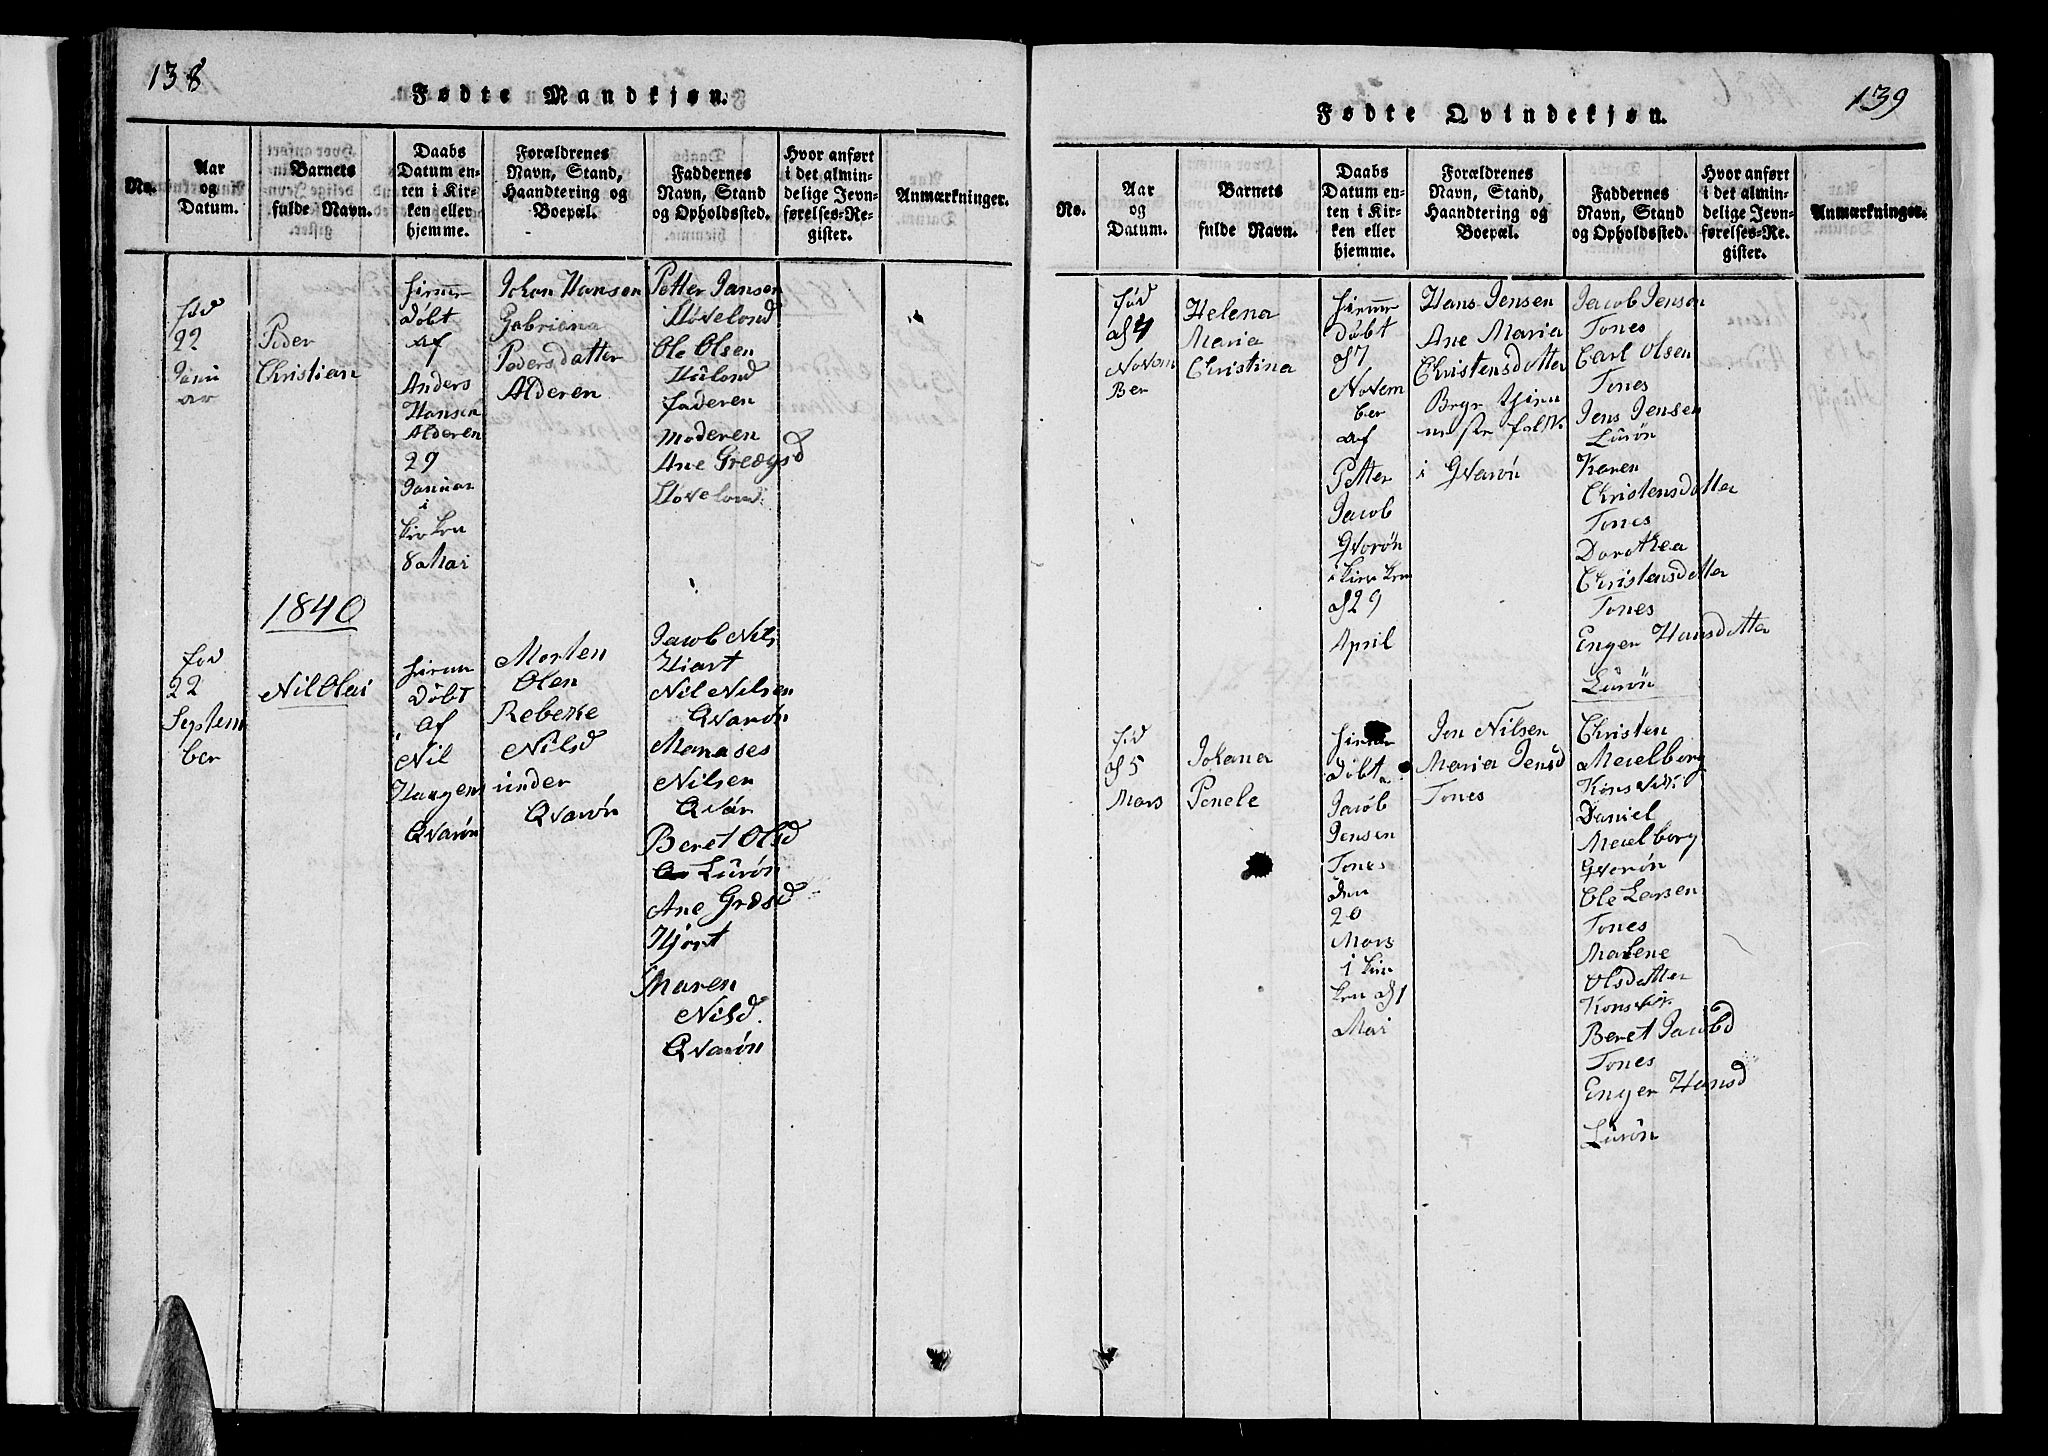 138
Fødte Mandkjøn.
No.
Aar
og
Datum.
Barnets
fulde Navn.
Daabs
Datum en-
ten i Kir-
ken eller
hjemme.
Forældrenes
Navn, Stand,
Haandtering og
Boepæl.
Faddernes
Navn, Stand
og Opholdssted.
Hvor anført
i det almin-
delige Jevn-
førelses-Re-
gister.
Anmærkninger.
fød
22
Janu
ar
Peder
Christian
døbt
af
Anders
Hansen
Alderen
29
Januar
i
kirken
8 Mai
Johan Hansen
Gabriena
Pedersdatter
Alderen
Petter Jansen
Hovelond
Ole Olsen
Hulond
faderen
moderen
Ane Gregsd
Hovelond
1840
fød
22
Septem
ber
Nil Olai
døbt
af
Nil
Haugens
Qvarøn
Morten
Olen
Rebeke
Nilsd
under
Qvarøn
Jacob Nils
Hiart
Nil Nilsen
Qvarøn
Manases
Nilsen
Qvar
Beret Olsd
Lurøn
Ane Gresd
Hjort
Maren
Nilsd
Qvarøn
139
Fødte Qvindekjøn.
No.
Aar
og
Datum.
Barnets
fulde Navn.
Daabs
Datum en-
ten i Kir-
ken eller
hjemme.
Forældrenes
Navn, Stand,
Haandtering og
Boepæl.
Faddernes
Navn, Stand
og Opholdssted.
Hvor anført
i det almin-
delige Jevn-
førelses-Re-
gister.
Anmærkninger.
fød
d 4
Novem
Ber
Helena
Maria
Christina
døbt
d 7
Novem
ber
af
Petter
Jacob
Gvorøn
i kirken
d 29
April
Hans Jensen
Ane Maria
Christensdatter
i Gvarøn
Jacob Jenson
Tones
Carl Olsen
Tones
Jens Jensen
Lurøn
Karen
Christensdatter
Tones
Dorothea
Christensdatter
Tones
Enger Hansdatter
Lurøn
fød
d 5
Mars
Johana
Penele
døbt
Jacob
Jensen
Tones
den
20
Mars
i kir
ken d 1
Mai
Jon Nilsen
Maria Jensd
Tones
Christen
Meielborg
Konsvik
Daniel
Meielborg
Gvorøn
Ole Larsen
Tones
Marlene
Olsdatter
Konsvik
Beret Jacobd
Tones
Enger Hansd
Lurøn